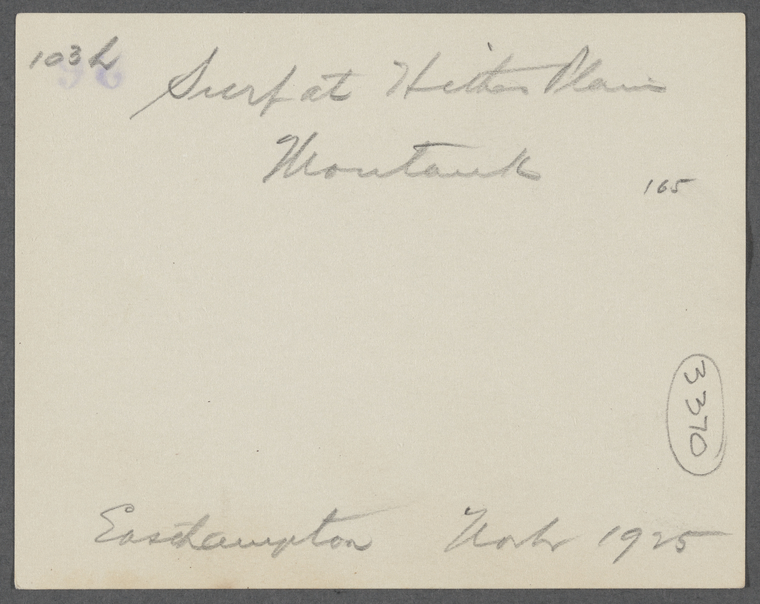 103 L
Surf at Hither Plain
Montauk
165
3370
Easthampton Novbr 1925